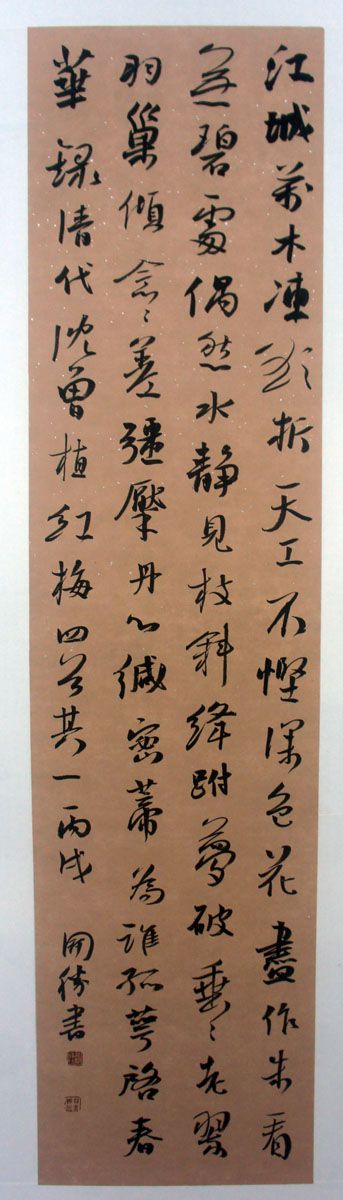 江城萬木凍欲折天工不慳深色花盡作朱看
無碧處偶然水靜見枝斜絳跗夢破垂垂老翠
羽巢傾念念差彊擪丹心緘密蒂為誰孤萼啓春
華錄清代沈曾植紅梅四首其一丙戌
開勝書